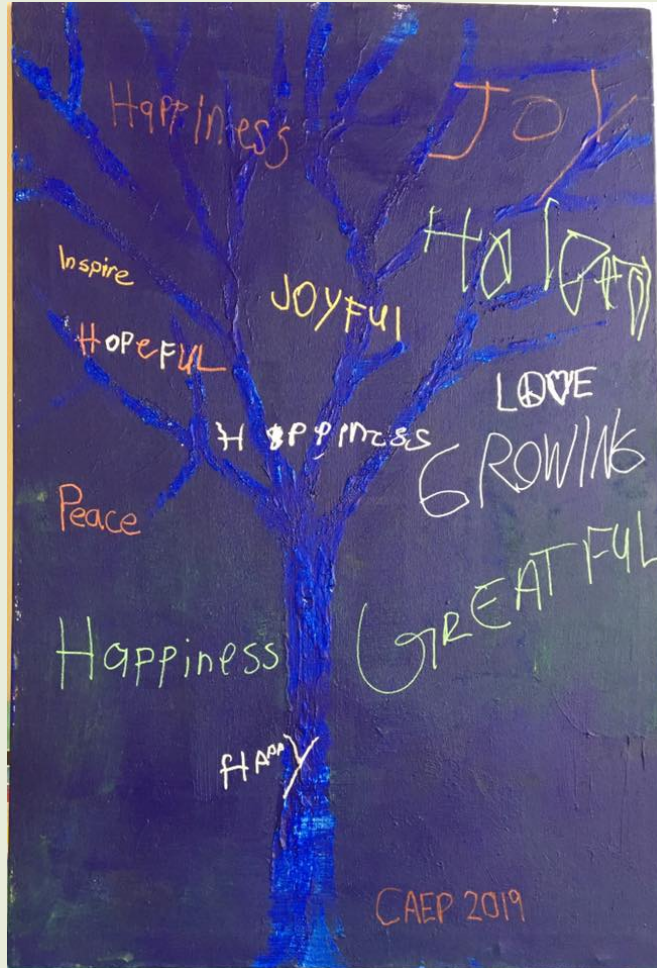 Happiness
JOY
Inspire
JOYFUl
HOPeFUL
LOVE
HAPPINESS
GROWING
Peace
GREATFUL
Happiness
HAPPY
CAEP 2019